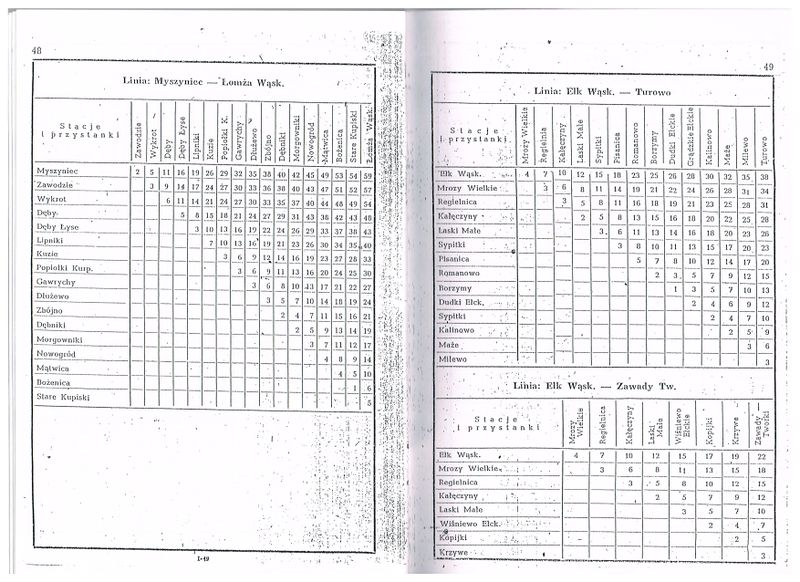 48
Linia: Myszyniec — Łomża Wąsk.
Stacje i przystanki Zawodzie Wykrot Dęby Dęby Łyse Lipniki Kuzie Popiołki K. Gawrychy Dłużewo Zbójno Dębniki Morgowniki Nowogród Mątwica Bożenica Stare Kupiski Łomża Wąsk.
Myszyniec 2 5 11 16 19 26 29 32 35 38 40 42 45 49 53 54 59
Zawodzie 3 9 14 17 24 27 30 33 36 38 40 43 47 51 52 57
Wykrot 6 11 14 21 24 27 30 33 35 37 40 44 48 49 54
Dęby 5 8 15 18 21 24 27 29 31 43 38 42 43 48
Dęby Łyse 3 10 13 16 19 22 24 26 29 33 37 38 43
Lipniki 7 10 13 16 19 21 23 26 30 34 35 40
Kuzie 3 6 9 12 14 16 19 23 27 28 33
Popiołki Kurp. 3 6 9 11 13 16 20 24 25 30
Gawrychy 3 6 8 10 13 17 21 22 27
Dłużewo 3 5 7 10 14 18 19 24
Zbójno 2 4 7 11 15 16 21
Dębniki 2 5 9 13 14 19
Morgowniki 3 7 11 12 17
Nowogród 4 8 9 14
Mątwica 4 5 10
Bożenica 1 6
Stare Kupiski 5
I-49
49
Linia: Ełk Wąsk. — Turowo
Stacje i przystanki Mrozy Wielkie Regielnia Kałęczyny Laski Małe Sypitki Pisanica Romanowo Borzymy Dudki Ełckie Grądzkie Ełckie Kalinowo Maże Milewo Turowo
Ełk Wąsk. 4 7 10 12 15 18 23 25 26 28 30 32 35 38
Mrozy Wielkie 3 6 8 11 14 19 21 22 24 26 28 31 34
Regielnica 3 5 8 11 16 18 19 21 23 25 28 31
Kałęczyny 2 5 8 13 15 16 18 20 22 25 28
Laski Małe 3 6 11 13 14 16 18 20 23 26
Sypitki 3 8 10 11 13 15 17 20 23
Pisanica 5 7 8 10 12 14 17 20
Romanowo 2 3 5 7 9 12 15
Borzymy 1 3 5 7 10 13
Dudki Ełck. 2 4 6 9 12
Sypitki 2 4 7 10
Kalinowo 2 5 9
Maże 3 6
Milewo 3
Linia: Ełk Wąsk. — Zawady Tw.
Stacje i przystanki Mrozy Wielkie Regielnica Kałęczyny Laski Małe Wiśniewo Ełckie Kopijki Krzywe Zawady — Tworki
Ełk Wąsk. 4 7 10 12 15 17 19 22
Mrozy Wielkie 3 6 8 11 13 15 18
Regielnica 3 5 8 10 12 15
Kałęczyny 2 5 7 9 12
Laski Małe 3 5 7 10
Wiśniewo Ełck. 2 4 7
Kopijki 2 5
Krzywe 3